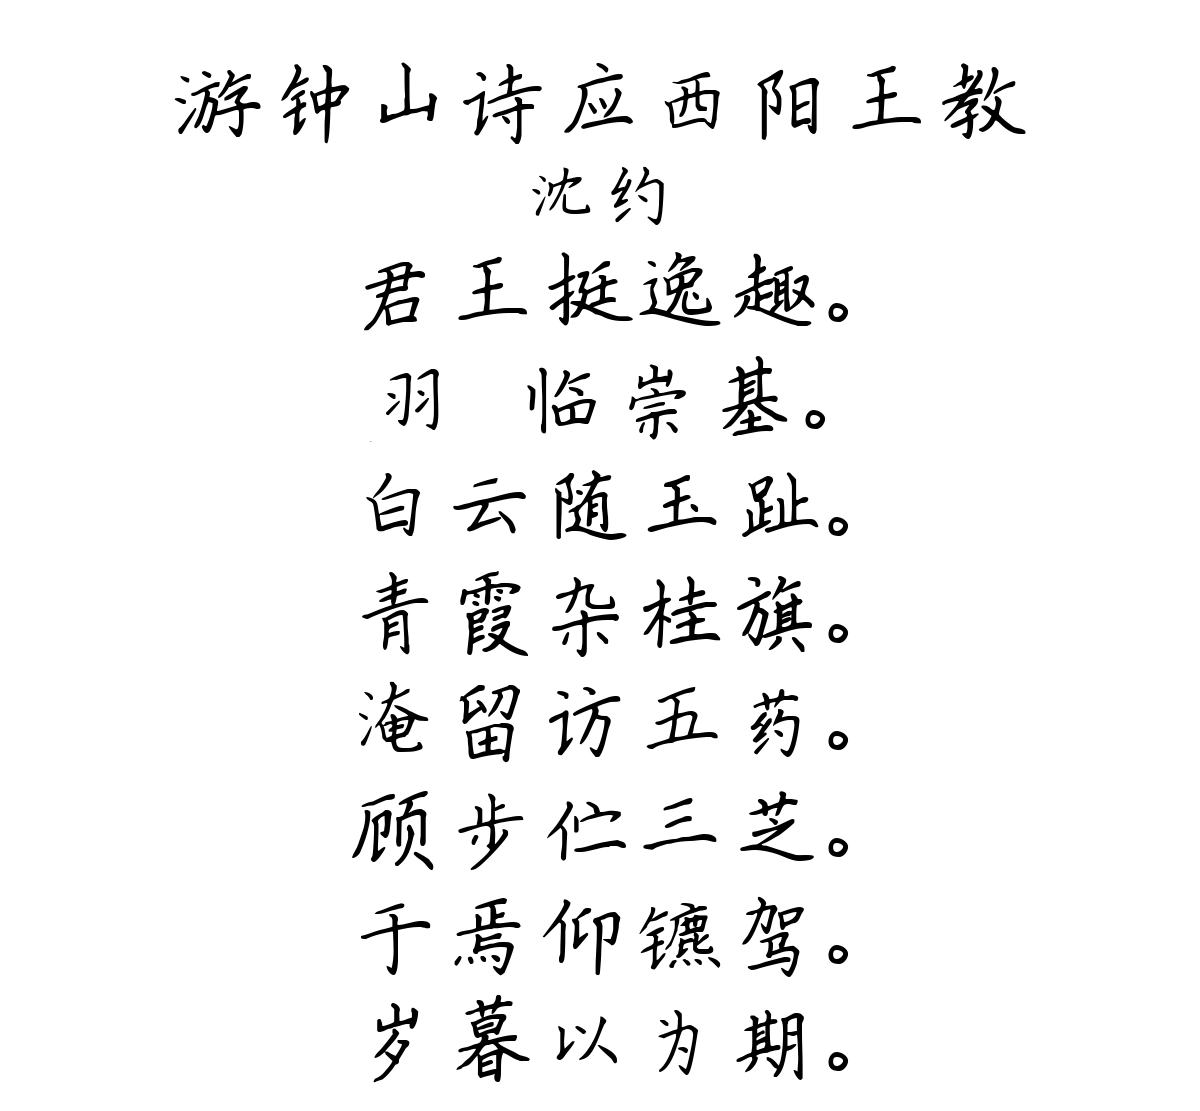 游钟山诗应西阳王教
沈约
君王挺逸趣。
羽 临崇基。
白云随玉趾。
青霞杂桂旗。
淹留访五药。
顾步伫三芝。
于焉仰镳驾。
岁暮以为期。